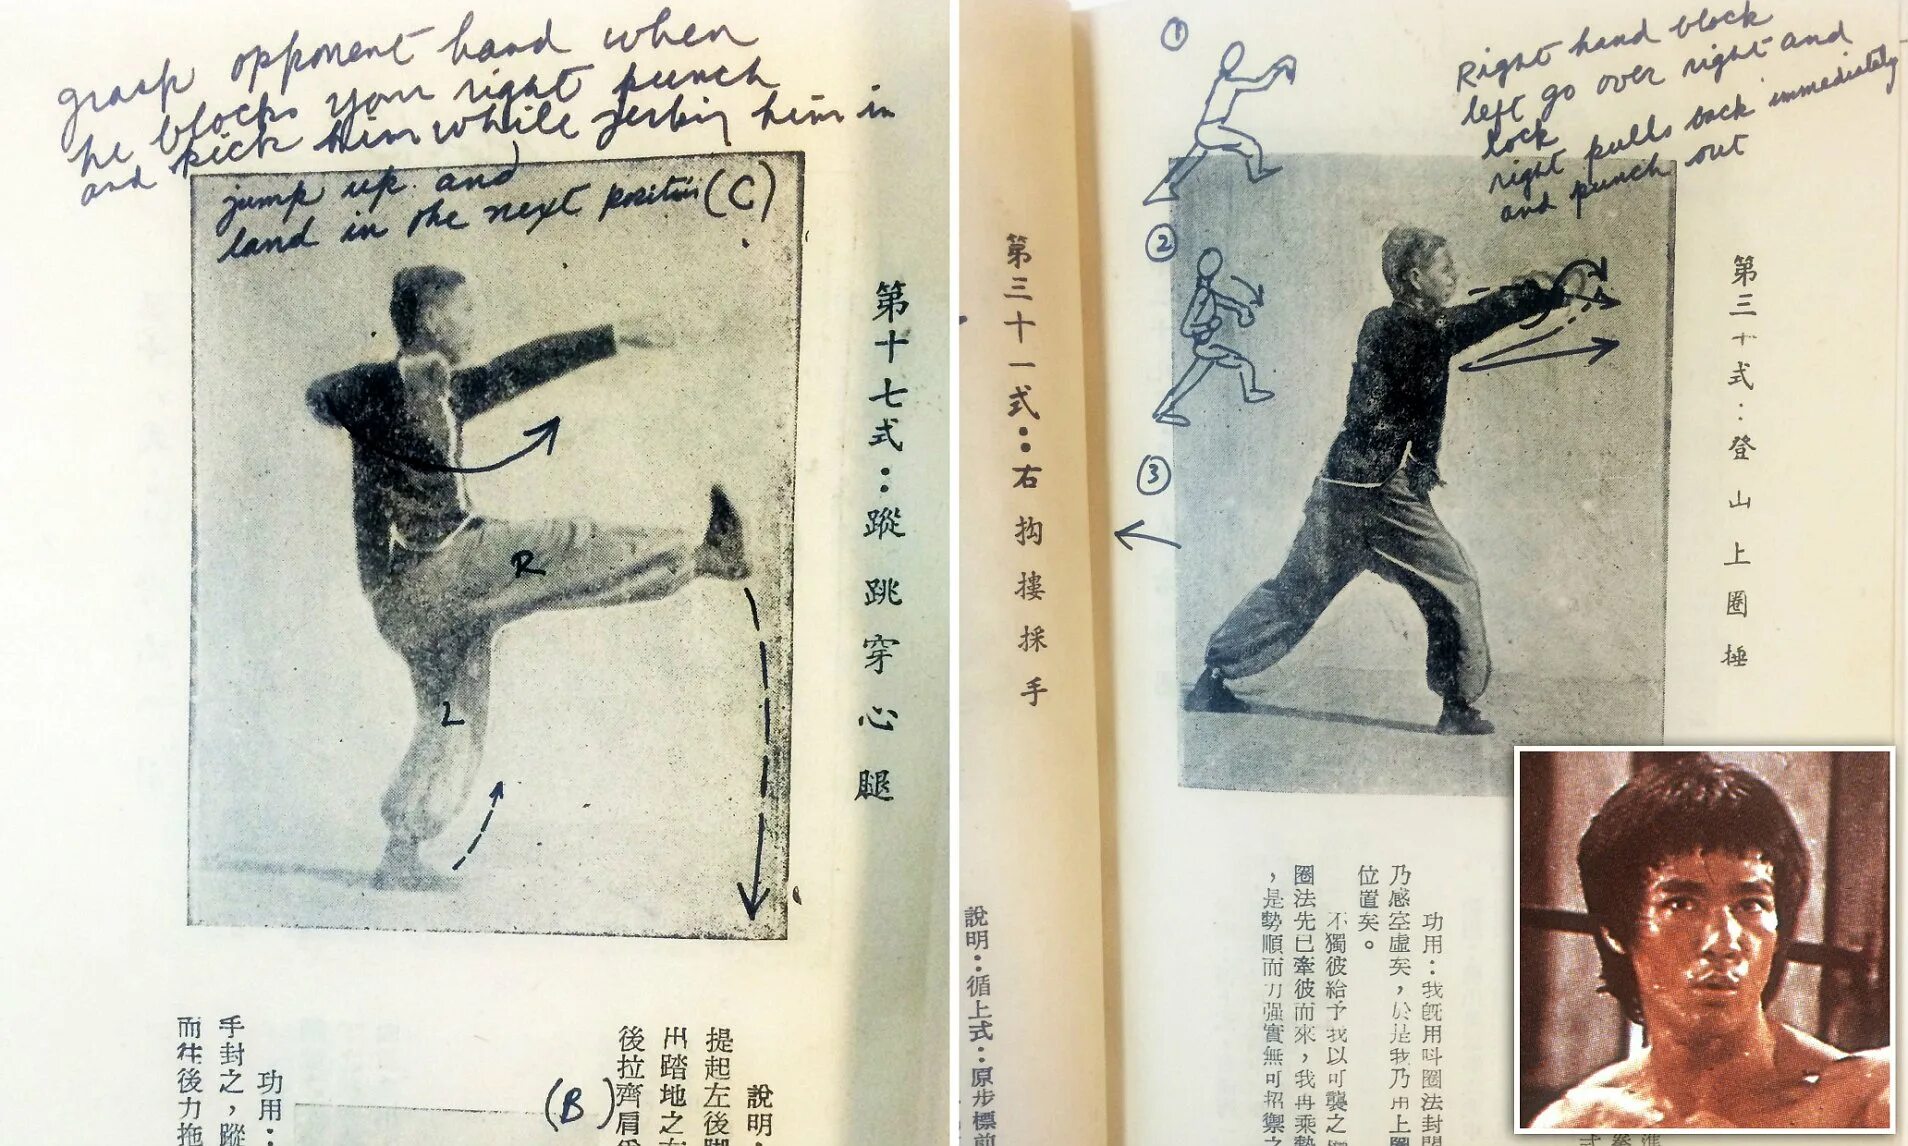 grasp opponent hand when
he blocks your right punch
and kick him while jerking him in
jump up and
land in the next position (C)
R
L
第十七式：蹤跳穿心腿
說明：
提起左後腳
出踏地之左
後拉齊肩
(B)
功用：
手封之，蹤
而往後力拖
第三十一式：右拘摟採手
說明：循上式：原步標前
①
②
③
Right hand block
left go over right and
lock
right pulls back immediately
and punch out
第三十式：登山上圈捶
功用：我旣用叫圈法封閉
乃感空虛矣，於是我乃用上圈
位置矣。
不獨彼給予我以可襲之
圈法先已牽彼而來，我再乘勢
，是勢順而力强實無可招禦之